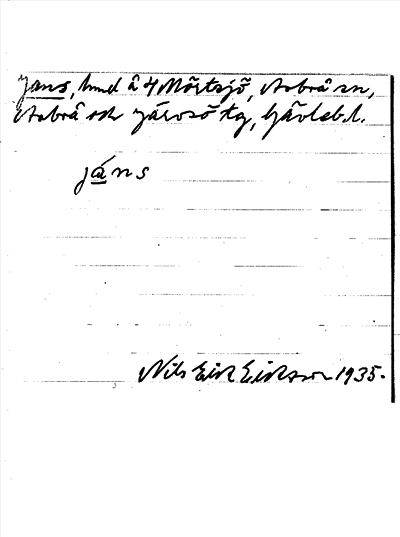 Jans, hmd å 4 Mörtsjö, Arbrå sn,
Arbrå och Järvsö tg, Gävleb. l.
jáns
Nils Eric Eriksson 1935.